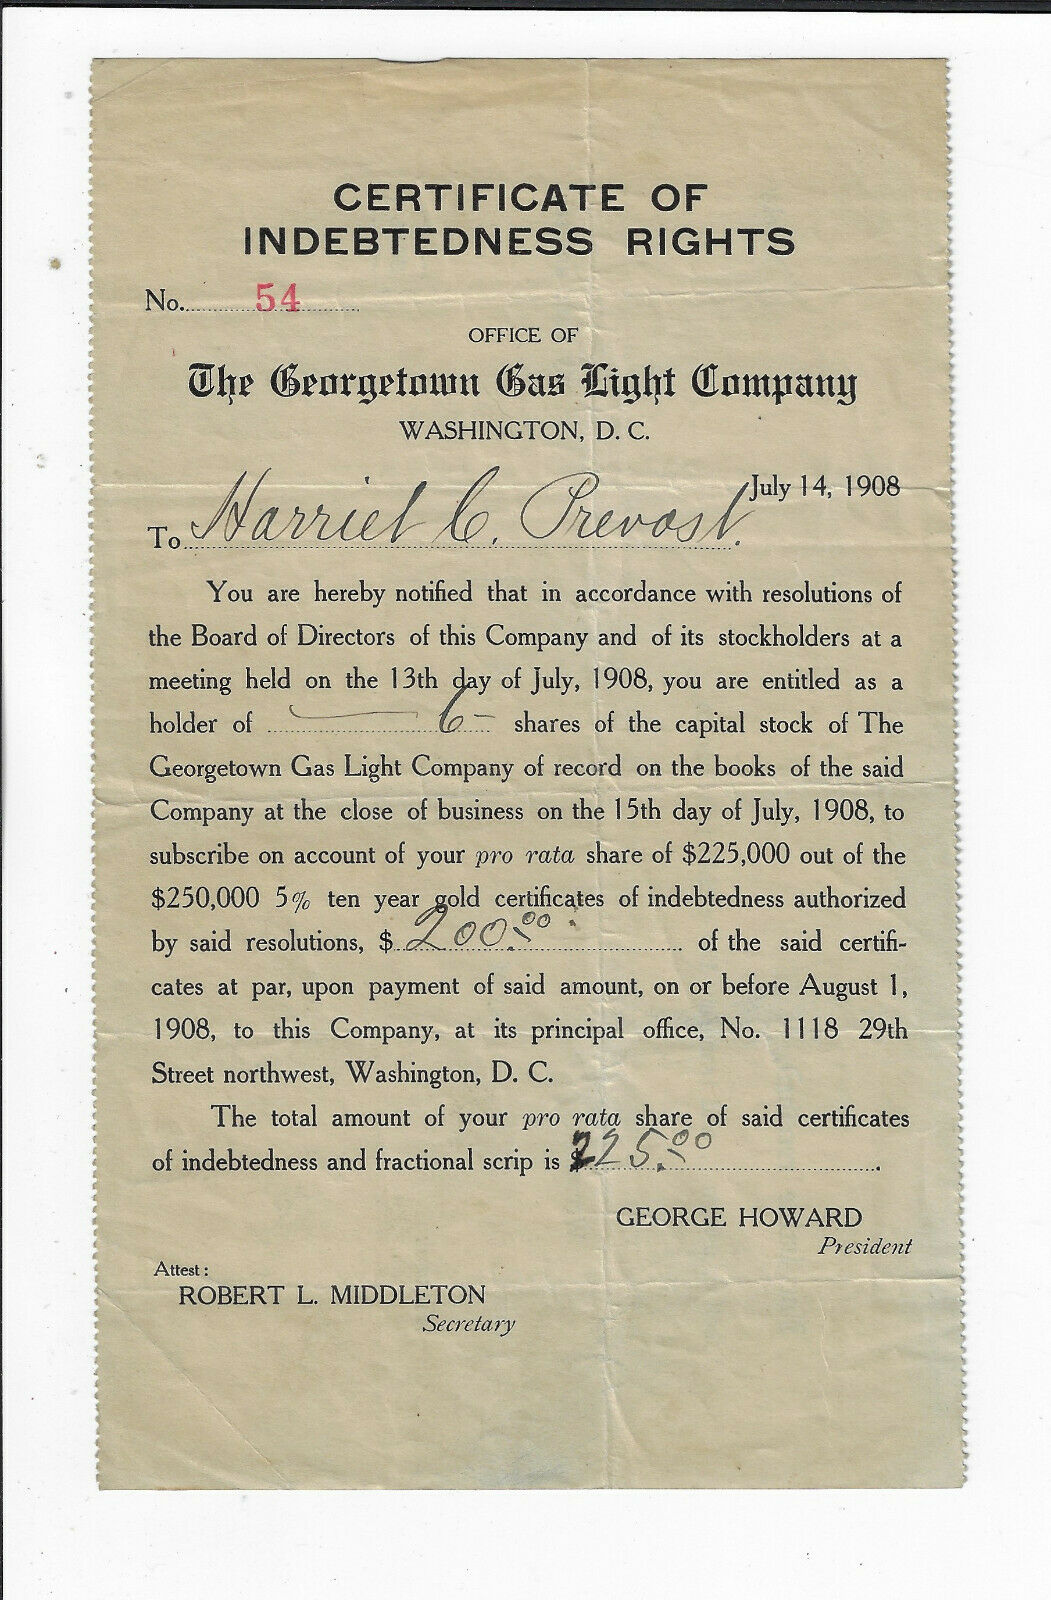 CERTIFICATE OF
INDEBTEDNESS RIGHTS
No. 54
OFFICE OF
The Georgetown Gas Light Company
WASHINGTON, D. C.
July 14, 1908
To Harriet C. Prevost.
You are hereby notified that in accordance with resolutions of
the Board of Directors of this Company and of its stockholders at a
meeting held on the 13th day of July, 1908, you are entitled as a
holder of 6 shares of the capital stock of The
Georgetown Gas Light Company of record on the books of the said
Company at the close of business on the 15th day of July, 1908, to
subscribe on account of your pro rata share of $225,000 out of the
$250,000 5% ten year gold certificates of indebtedness authorized
by said resolutions, $ 200.00 of the said certifi-
cates at par, upon payment of said amount, on or before August 1,
1908, to this Company, at its principal office, No. 1118 29th
Street northwest, Washington, D. C.
The total amount of your pro rata share of said certificates
of indebtedness and fractional scrip is $225.00.
GEORGE HOWARD
President
Attest:
ROBERT L. MIDDLETON
Secretary